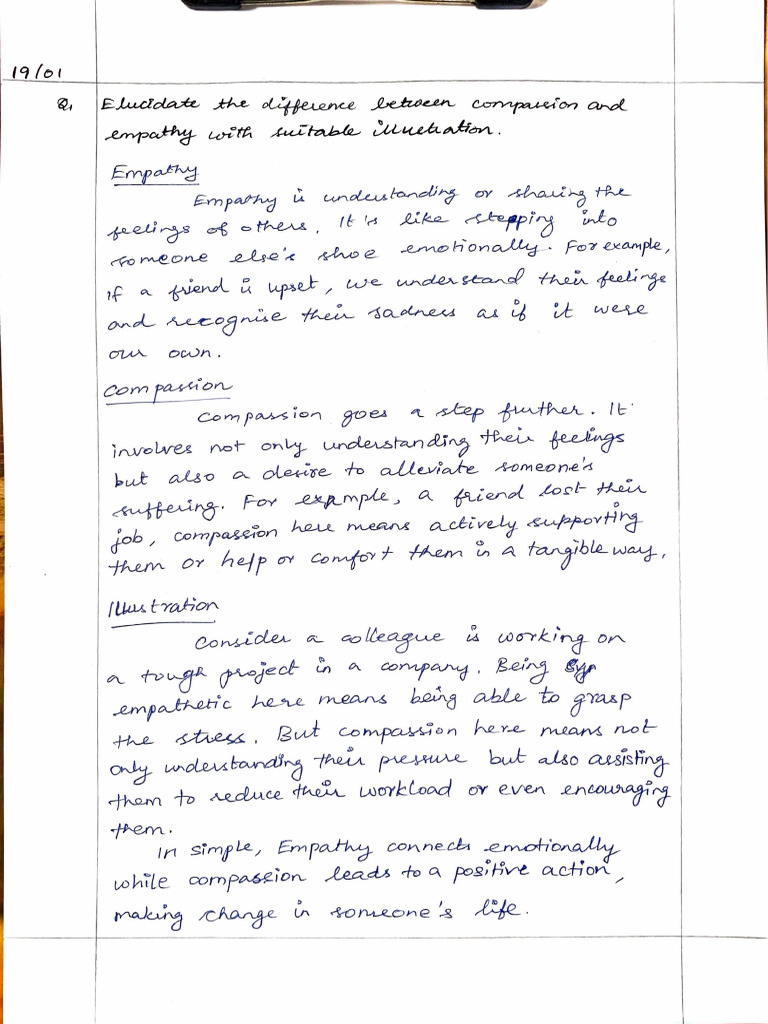 19/01
Q. Elucidate the difference between compassion and
empathy with suitable illustration.
Empathy
Empathy is understanding or sharing the
feelings of others. It's like stepping into
someone else's shoe emotionally. For example,
if a friend is upset, we understand their feelings
and recognise their sadness as if it were
our own.
Compassion
Compassion goes a step further. It
involves not only understanding their feelings
but also a desire to alleviate someone's
suffering. For example, a friend lost their
job, compassion here means actively supporting
them or help or comfort them in a tangible way.
Illustration
Consider a colleague is working on
a tough project in a company. Being
empathetic here means being able to grasp
the stress. But compassion here means not
only understanding their pressure but also assisting
them to reduce their workload or even encouraging
them.
In simple, Empathy connects emotionally
while compassion leads to a positive action,
making change in someone's life.